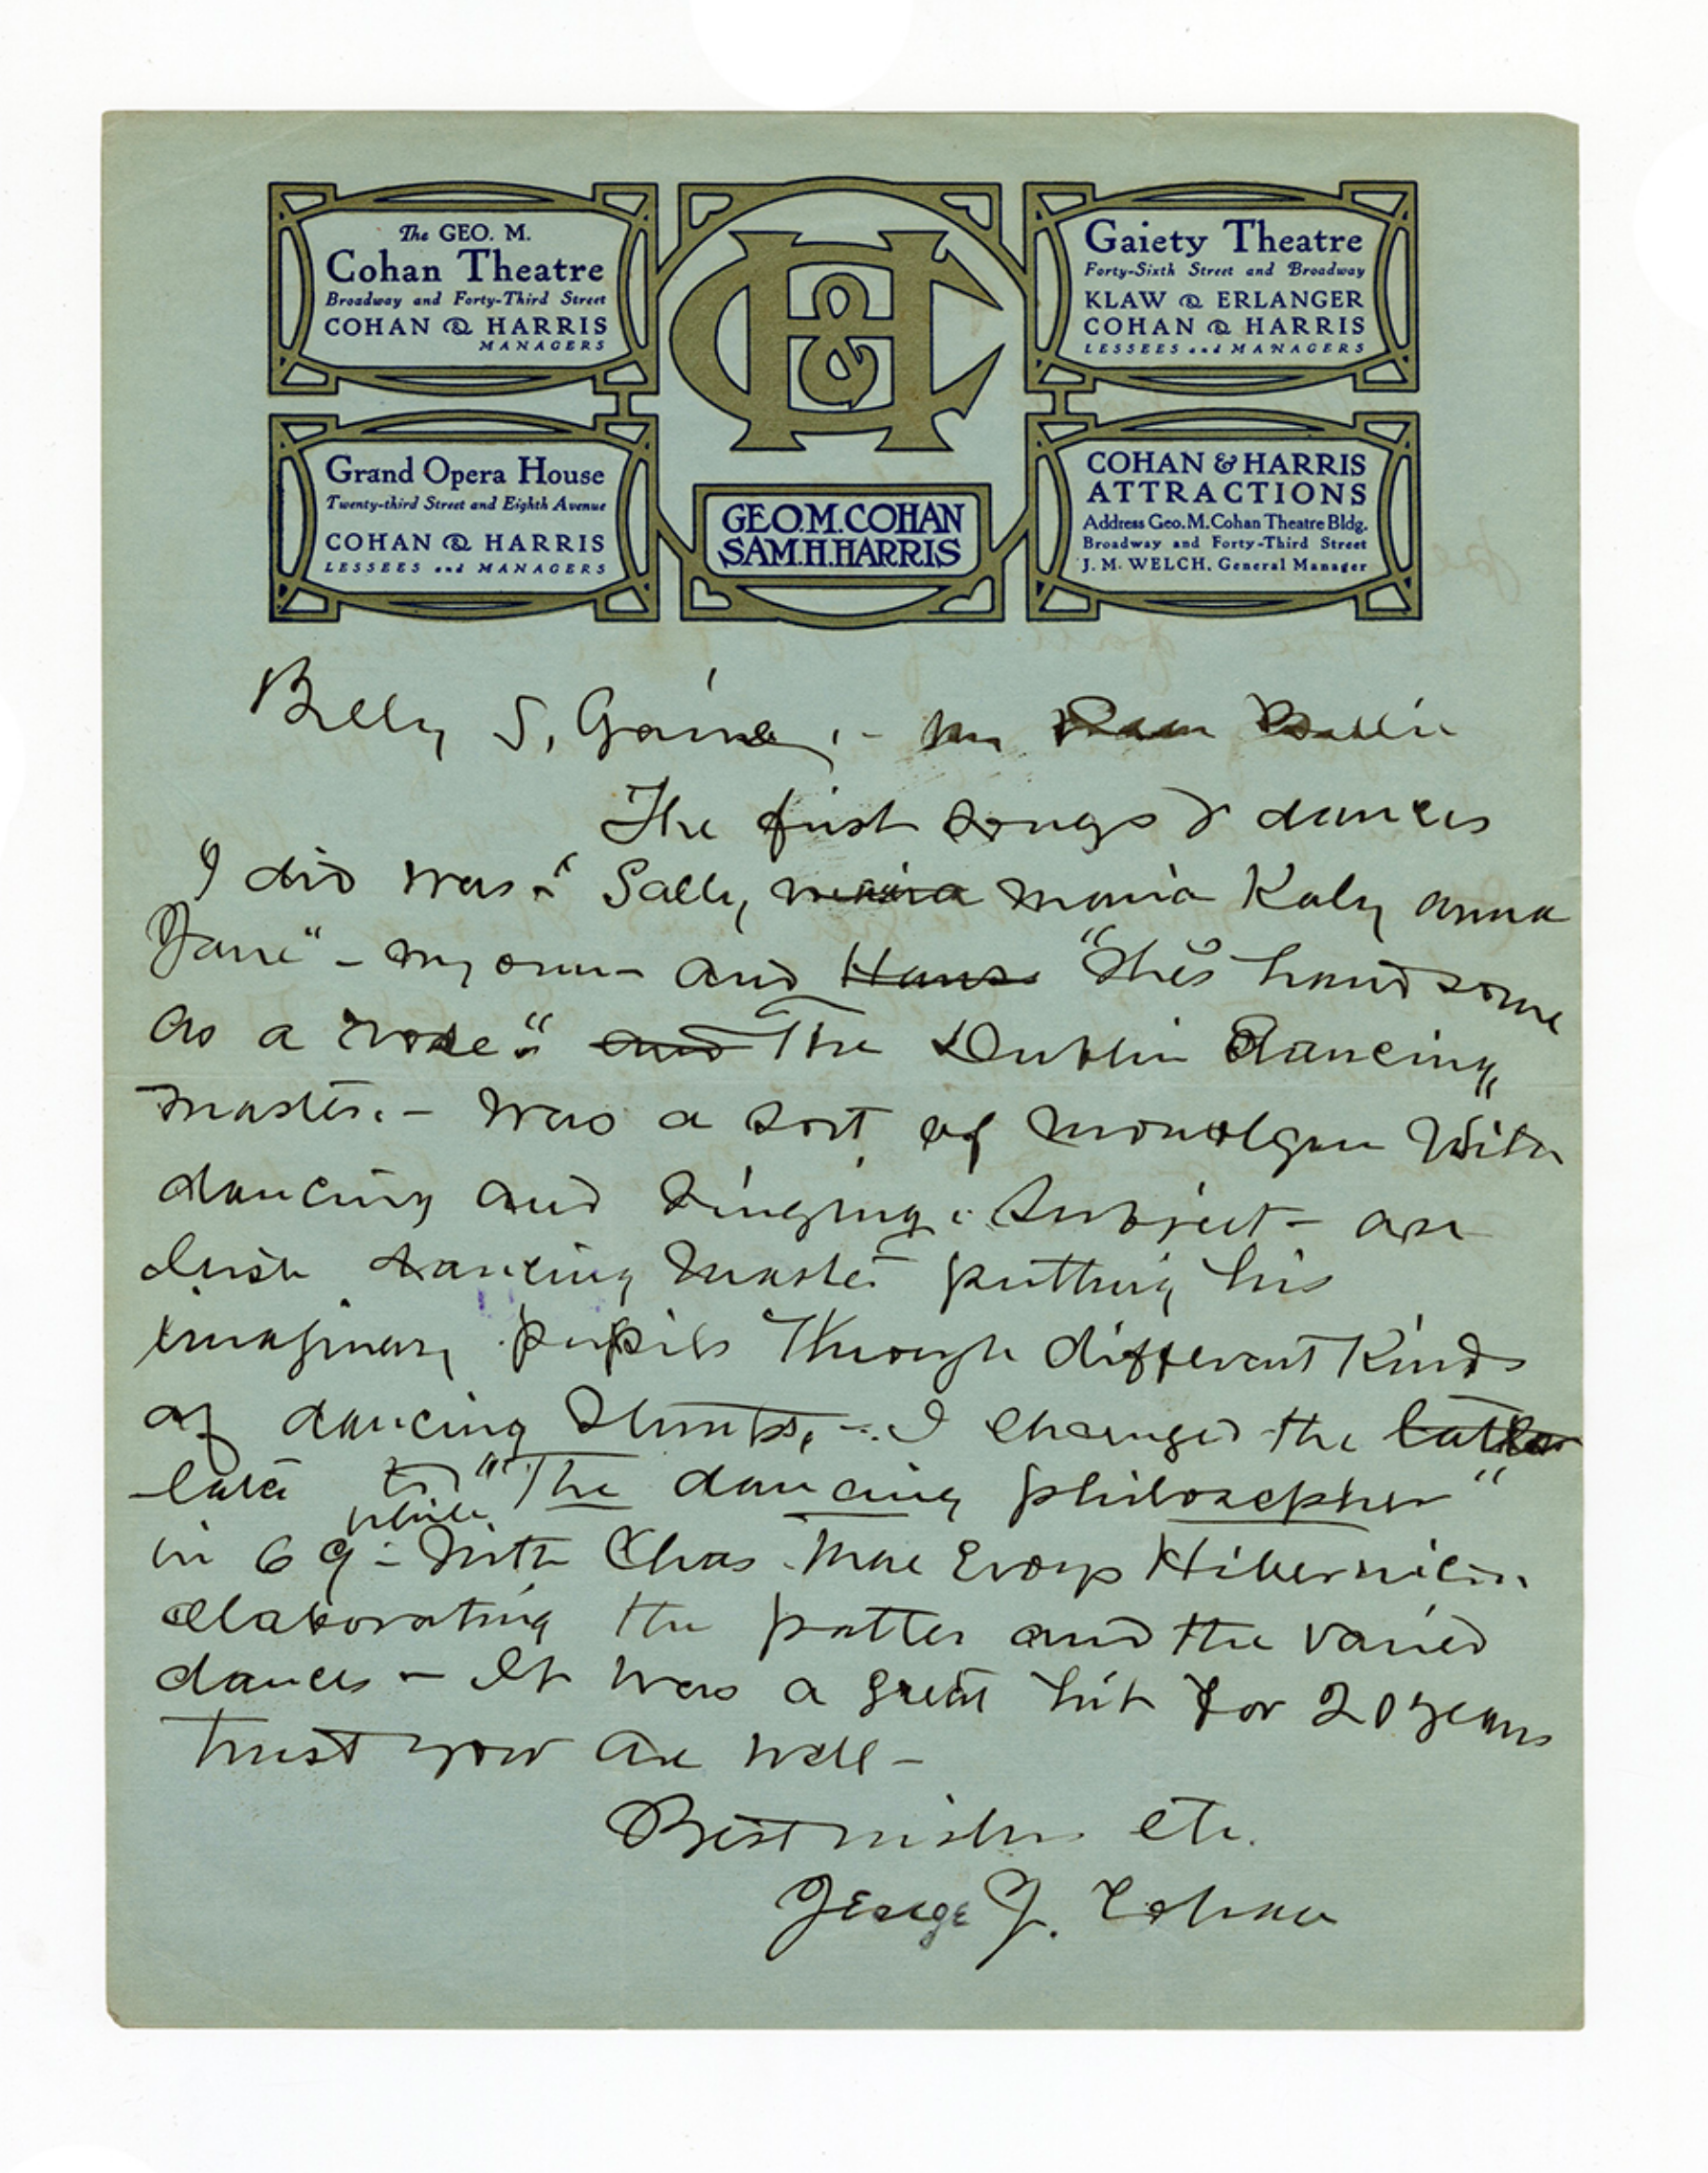 The GEO. M.
Cohan Theatre
Broadway and Forty-Third Street
COHAN & HARRIS
MANAGERS
Grand Opera House
Twenty-third Street and Eighth Avenue
COHAN & HARRIS
LESSEES and MANAGERS
C&H
GEO.M.COHAN
SAM.H.HARRIS
Gaiety Theatre
Forty-Sixth Street and Broadway
KLAW & ERLANGER
COHAN & HARRIS
LESSEES and MANAGERS
COHAN & HARRIS
ATTRACTIONS
Address Geo. M. Cohan Theatre Bldg.
Broadway and Forty-Third Street
J. M. WELCH, General Manager
Billy S,
The first songs & dances
I did was "Sally, maria Katy anna
Jane" - my own - and Hans "She's handsome
as a rose" and The Dublin Dancing
master. - was a sort of with
dancing and singing. Subject - an
Irish dancing master putting his
imaginary pupils Through different Kinds
of dancing Stunts, - I changed the
later to "The dancing philosopher"
while
in 69 - with Chas. Mac Evoys
elaborating the patter and the varied
dances - It was a great hit for 20 years
trust you are well -
Best wishes etc.
J. Cohan